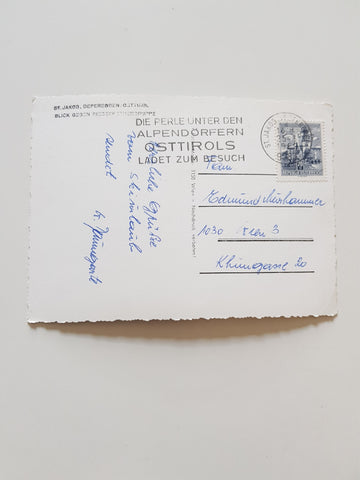 ST. JAKOB, DEFEREGGEN, OSTTIROL
BLICK GEGEN
DIE PERLE UNTER DEN
ALPENDÖRFERN
OSTTIROLS
LADET ZUM BESUCH
ST. JAKOB
Herzliche Grüße
vom Skiurlaub
sendet
Fam.
Edmund
1030 Wien 3
Khunngasse 20